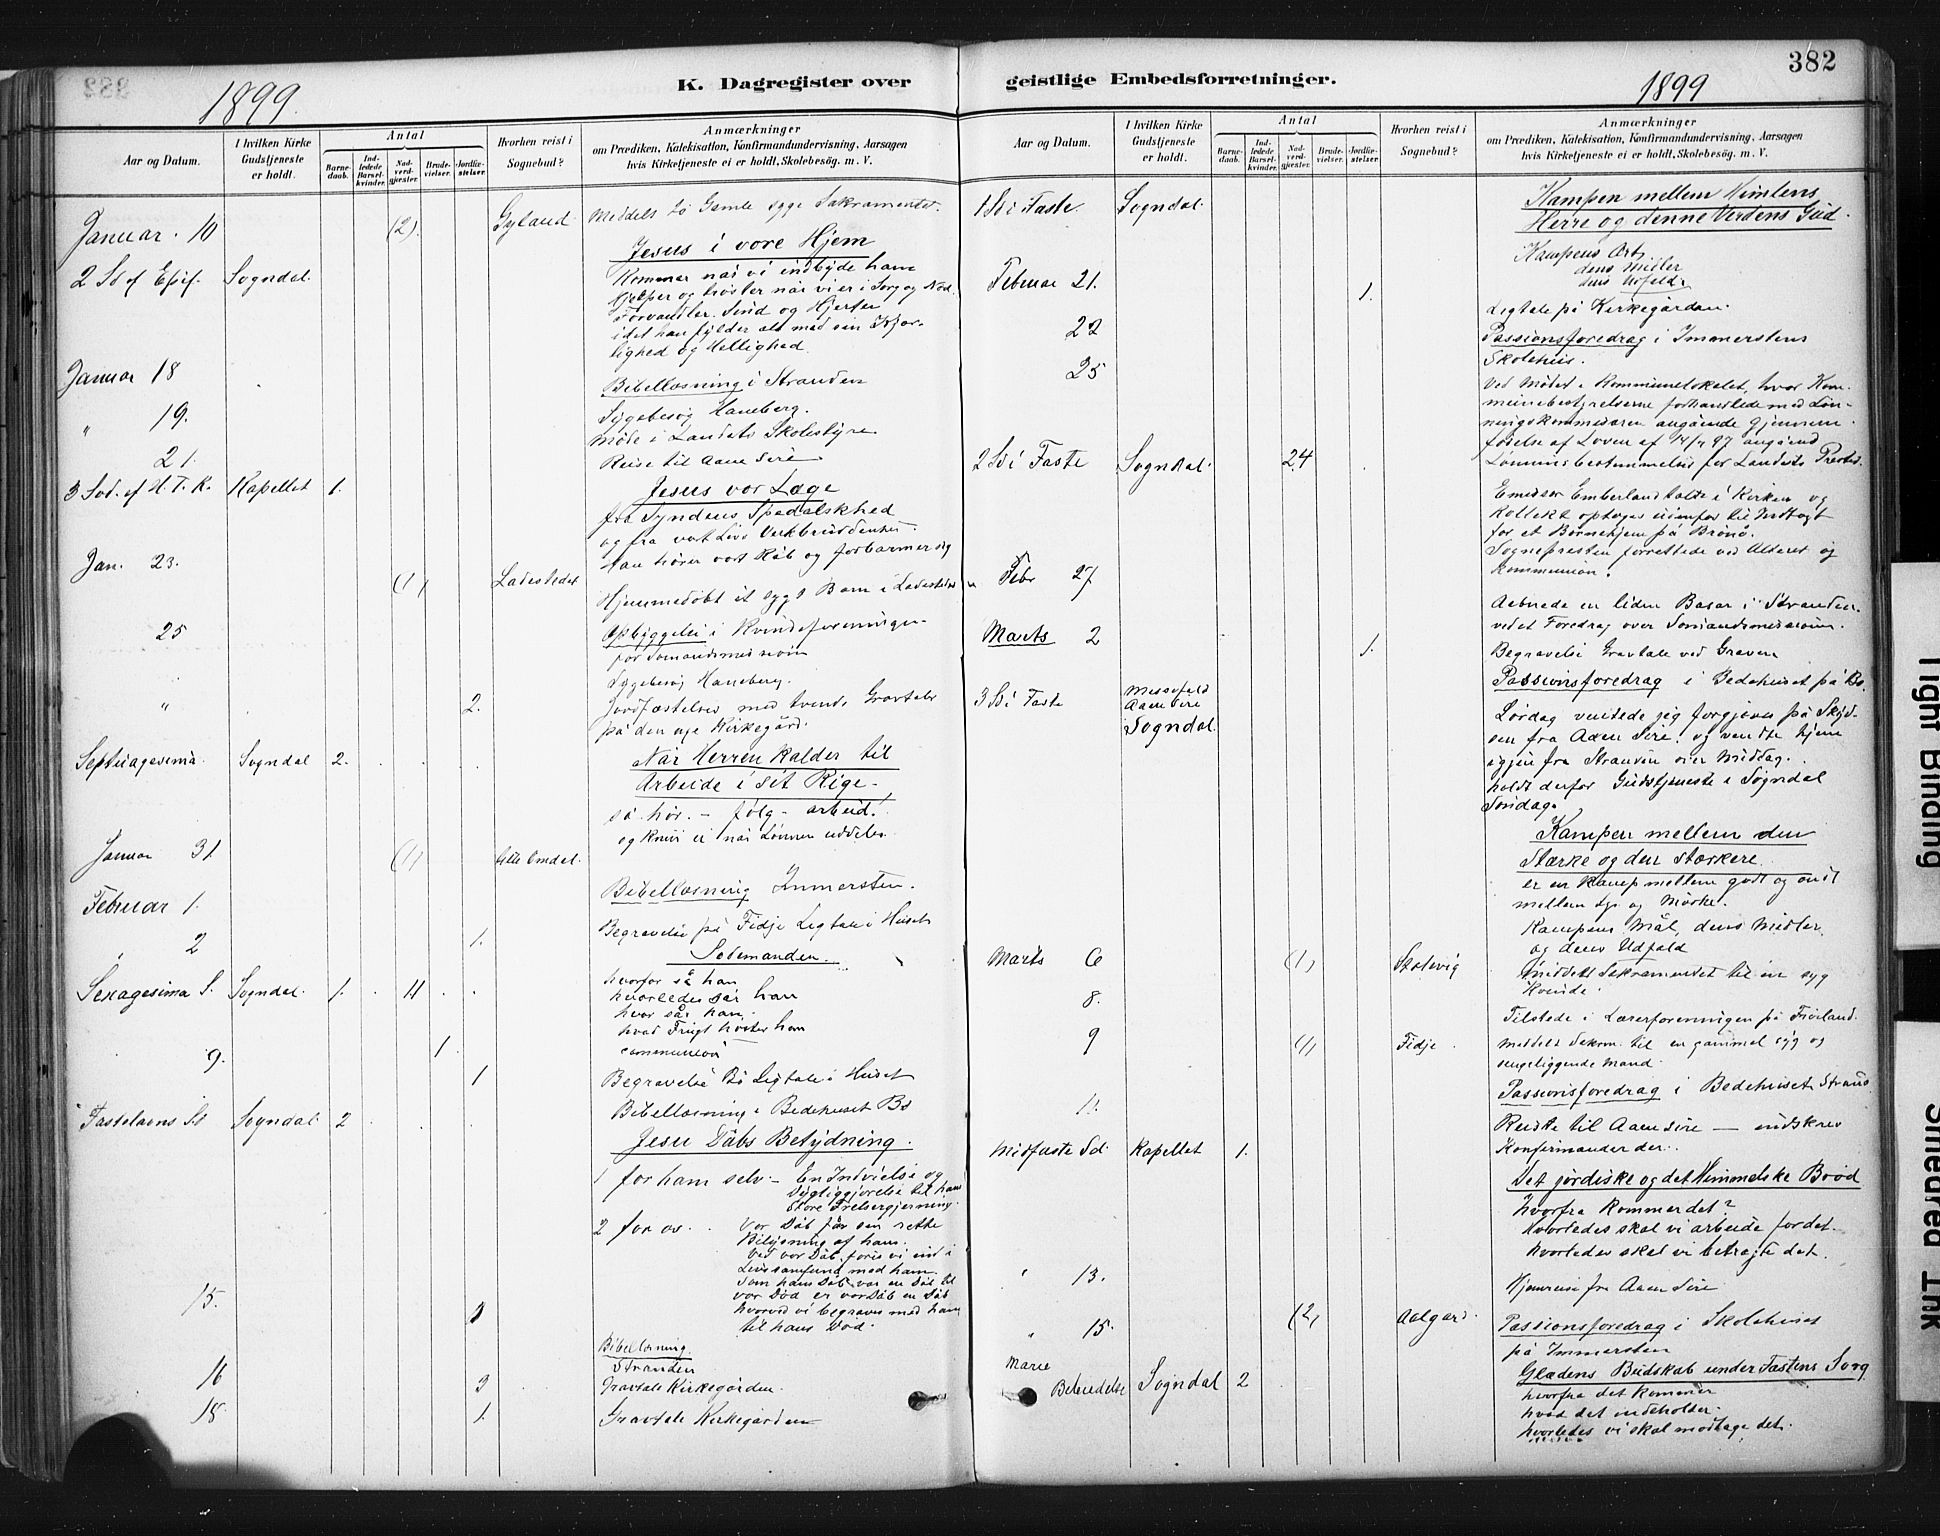 382
1899.
K. Dagregister over
Aar og Datum.
I hvilken Kirke Gudstjeneste er holdt.
Antal
Barnedaab.
Indledede Barselkvinder.
Nadverdgjester.
Brudevielser.
Jordfæstelser.
Hvorhen reist i Sognebud?
Anmærkninger
om Prædiken, Katekisation, Konfirmandundervisning, Aarsagen
hvis Kirketjeneste ei er holdt, Skolebesøg. m. V.
Januar 10 (2). Gyland Meddelt to Gamle syge Sakramentet.
Jesus i vore Hjem
2 Sd ef Epif. Sogndal. Kommer når vi indbyde ham
hjelper og trøster når vi er i Sorg og Nød.
Forvandler Sind og Hjerter
idet han fylder alt med sin Kjær-
lighed og Hellighed.
Januar 18 Bibellæsning i Stranden
" 19. Sygebesøg Haneberg.
Møde i Landets Skolestyre
21. Reise til Aaen Sire
3 Sød. ef H. T. K. Kapellet 1. Jesus vor Læge
fra Syndens Spedalskhed
og fra vort Livs Verkbruddenhet
Han hører vort Råb og forbarmer sig
Jan. 23. (1) Ladestedet Hjemmedøbt et sygt Barn i Ladestedet
25 Opbyggelse i Kvindeforeningen
for Sømandsmissiøn
Sygebesøg Haneberg.
" 2. Jordfæstelser med tvende Gravtaler
på den nye Kirkegård.
Septuagesima. Sogndal 2. Når Herren kalder til
Arbeide i sit Rige -
så hør. - følg - arbeid!
og knur ei når Lønnen uddeles.
Januar 31. (1) lille Omdal.
Februar 1. Bibellæsning Immersten.
2 1. Begravelse på Fidje Ligtale i Huset
Sædemanden.
Sexagesima S. Sogndal. 1. 11 hvorfor så han
hvorledes sår han
hvor sår han.
hvad Frugt høster han
communion
9. 1 1 Begravelse Bø Ligtale i Huset
Bibellæsning i Bedehuset Bø
Fastelavns Sd Sogndal 2 Jesu Dåbs Betydning.
1 for ham selv - En Indvielse og
Dygtiggjørelse til hans
store Frelsergjerning.
2 for os. Vor Dåb får sin rette
Betydning af hans.
Ved vor Dåb føres vi ind i
Livssamfund med ham.
Som hans Dåb var en Dåb til
vor Død er vor Dåb en Dåb
hvorved vi begraves med ham
til hans Død.
15. 1 Bibellæsning
Stranden
16 Gravtale Kirkegården.
18. 1. Gravtale Kirkegården
geistlige Embedsforretninger.
1899
382
Aar og Datum.
I hvilken Kirke Gudstjeneste er holdt.
Antal
Barnedaab.
Indledede Barselkvinder.
Nadverdgjester.
Brudevielser.
Jordfæstelser.
Hvorhen reist i Sognebud?
Anmærkninger
om Prædiken, Katekisation, Konfirmandundervisning, Aarsagen
hvis Kirketjeneste ei er holdt, Skolebesøg. m. V.
1 Sd i Faste. Sogndal. Kampen mellem Himlens
Herre og denne Verdens Gud.
Kampens Art,
dens Midler
dens Udfald.
Februar 21. 1. Ligtale på Kirkegården.
22 Passionsforedrag i Immerstens
Skolehus.
25 Ved Mødet i Kommunelokalet, hvor Kom-
munebestyrelserne forhandlede med Løn-
ningskommisæren angående Gjennem-
førelse af Loven af 14/7 97 angående
Lønningsbestemmelse for Landets Prester.
2 Sd i Faste Sogndal. 24 Emissær Emberland talte i Kirken og
Kollekt optoges udenfor til Indtægt
for et Børnehjem på Brønø.
Sognepresten forrettede ved Alteret og
Kommunion.
Febr 27 Aabnede en liden Basar i Stranden
ved et Foredrag over Sømandsmissionen.
Marts 2 1. Begravelse Gravtale ved Graven
Passionsforedrag i Bedehuset på Bø.
3 Sd i Faste Messefald Aaen Sire
Sogndal. Lørdag ventede jeg forgjæves på Skyd-
sen fra Aaen Sire, og vendte hjem
igjen fra Stranden over Middag.
holdt derfor Gudstjeneste i Sogndal
Søndag.
Kampen mellem den
Stærke og den stærkere.
er en Kamp mellem godt og ondt
mellem Lys og Mørke.
Kampens Mål, dens Midler,
og dens Udfald
Marts 6 (1) meddelt Sakramentet til en syg
Kvinde.
8. Tilstede i Lærerforeningen på Frøiland.
9 (1) Fidje. meddelt Sakram. til en gammel syg og
sengeliggende Mand.
Passionsforedrag i Bedehuset Strand
11. Reiste til Aaen Sire — indskrev
Konfirmander der.
Midfaste Sd. Kapellet 1. Det jordiske og det Himmelske Brød
Hvorfra kommer det?
hvorledes skal vi arbeide for det.
hvorledes skal vi betragte det.
" 13. Hjemreise fra Aaen Sire
" 15. (2) Aalgård. Passionsforedrag i Skolehuset
på Immersten
Marie Bebudelse Sogndal 2 Glædens Budskab under Fastens Sorg
hvorfra det kommer
hvad det indeholder.
hvorledes vi skal modtage det.
Tight Binding
Smeared Ink